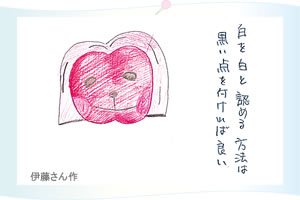 白を白と認める方法は
黒い点を付ければ良い
伊藤さん作